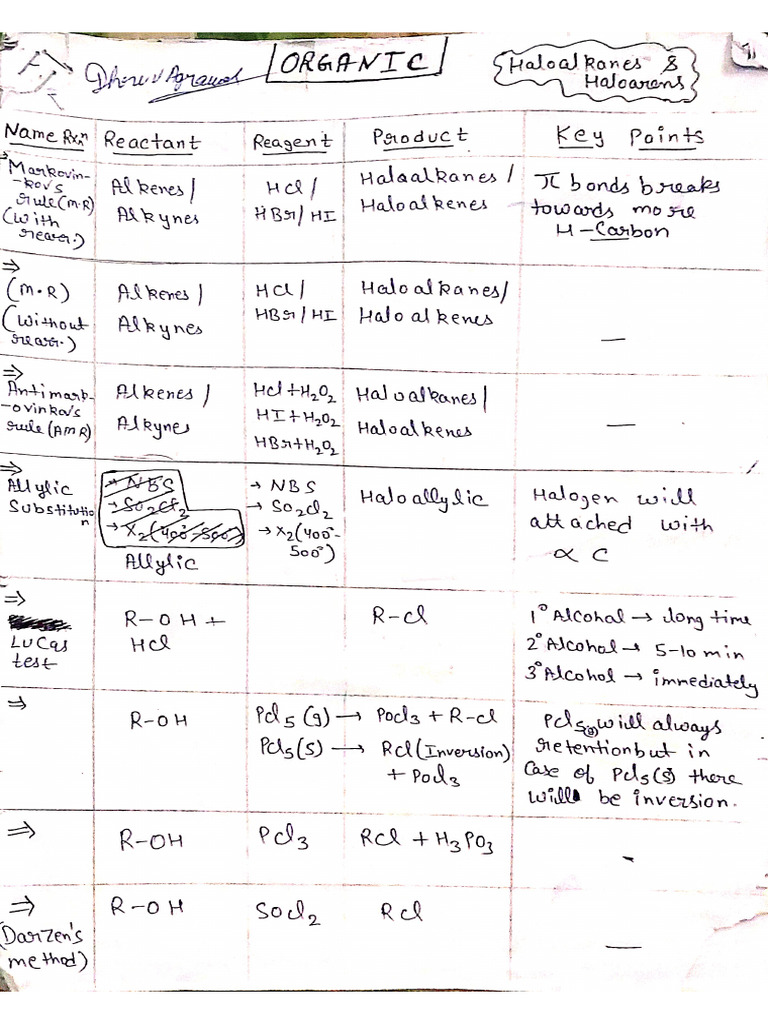 Dhruv Agrawal
ORGANIC
Haloalkanes &
Haloarens
Name Rxn Reactant Reagent Product Key Points
⇒ Markovin-
-kov's
rule (M.R)
(with
rearr.)
Alkenes /
Alkynes
HCl /
HBr / HI
Haloalkanes /
Haloalkenes
π bonds breaks
towards more
H-Carbon
⇒
(M.R)
(without
rearr.)
Alkenes /
Alkynes
HCl /
HBr / HI
Haloalkanes /
Haloalkenes
—
⇒
Antimark-
-ovinkov's
rule (AMR)
Alkenes /
Alkyne
HCl + H2O2
HI + H2O2
HBr + H2O2
Haloalkanes /
Haloalkenes
—
⇒
Allylic
Substitutio
n
→ NBS
→ SO2Cl2
→ X2 (400°-500°)
Allylic
→ NBS
→ SO2Cl2
→ X2 (400°-
500°)
Haloallylic
Halogen will
attached with
∝ C
⇒
LUCas
test
R-OH +
HCl
R-Cl
1° Alcohal → long time
2° Alcohol → 5-10 min
3° Alcohol → immediately
⇒
R-OH
PCl5 (g) → POCl3 + R-Cl
PCl5 (s) → RCl (Inversion)
+ POCl3
PCl5(g) will always
retention but in
Case of PCl5(s) there
will be inversion.
⇒
R-OH
PCl3
RCl + H3PO3
-
⇒
(Darzen's
method)
R-OH
SOCl2
RCl
—